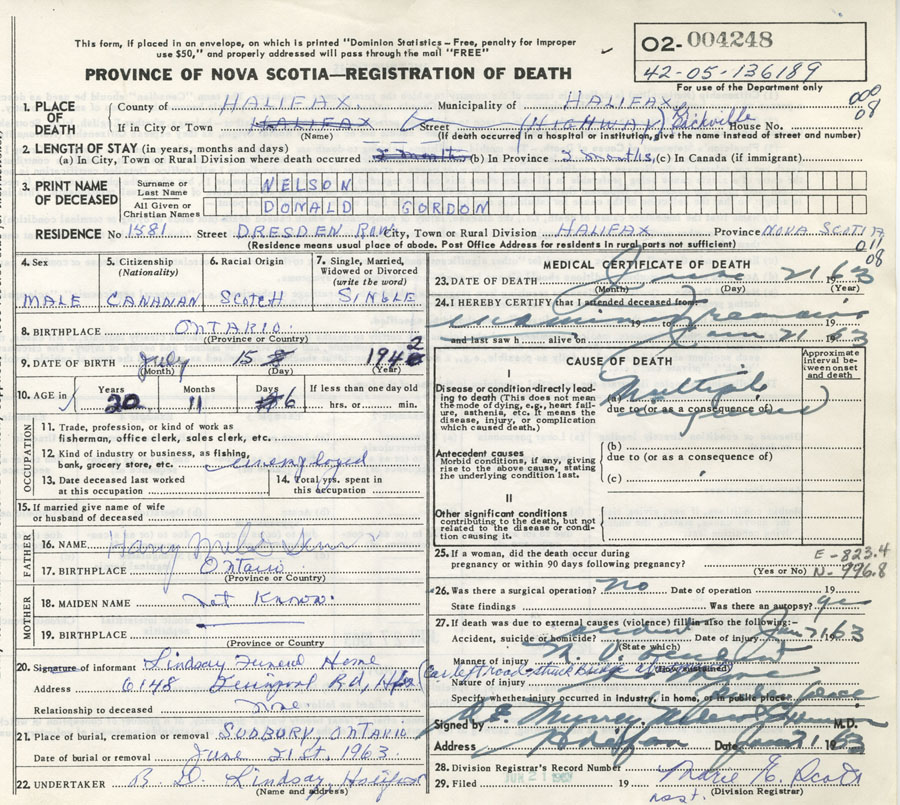 This form, if placed in an envelope, on which is printed "Dominion Statistics – Free, penalty for improper
use $50," and properly addressed will pass through the mail "FREE"
PROVINCE OF NOVA SCOTIA—REGISTRATION OF DEATH
O2- 004248
42-05-136189
For use of the Department only
1. PLACE OF DEATH
County of HALIFAX. Municipality of HALIFAX
000
08
If in City or Town HALIFAX Street (HIGHWAY) Sackville House No.
(Name) (If death occurred in a hospital or institution, give the name instead of street and number)
2. LENGTH OF STAY (in years, months and days)
(a) In City, Town or Rural Division where death occurred 2 months (b) In Province 2 months, (c) In Canada (if immigrant)
3. PRINT NAME OF DECEASED
Surname or Last Name NELSON
All Given or Christian Names DONALD GORDON
RESIDENCE No 1881 Street DRESDEN ROW City, Town or Rural Division HALIFAX Province NOVA SCOTIA
(Residence means usual place of abode. Post Office Address for residents in rural parts not sufficient)
011
08
4. Sex MALE
5. Citizenship (Nationality) CANANAN
6. Racial Origin SCOTCH
7. Single, Married, Widowed or Divorced (write the word) SINGLE
8. BIRTHPLACE ONTARIO.
(Province or Country)
9. DATE OF BIRTH July 15 1942
(Month) (Day) (Year)
10. AGE in Years 20 Months 11 Days 6 If less than one day old hrs. or min.
OCCUPATION
11. Trade, profession, or kind of work as fisherman, office clerk, sales clerk, etc.
12. Kind of industry or business, as fishing, bank, grocery store, etc. unemployed
13. Date deceased last worked at this occupation
14. Total yrs. spent in this occupation
15. If married give name of wife or husband of deceased
FATHER
16. NAME Harry
17. BIRTHPLACE Ontario
(Province or Country)
MOTHER
18. MAIDEN NAME Not Known.
19. BIRTHPLACE
(Province or Country)
20. Signature of informant Lindsay Funeral Home
Address 6148 Rd, Hfx
Relationship to deceased none
21. Place of burial, cremation or removal SUDBURY, ONTARIO
Date of burial or removal June 21st, 1963.
22. UNDERTAKER B. D. Lindsay, Halifax
(Name and address)
MEDICAL CERTIFICATE OF DEATH
23. DATE OF DEATH June 21 1963
(Month) (Day) (Year)
24. I HEREBY CERTIFY that I attended deceased from:
19 to 19
and last saw h alive on June 21 1963
CAUSE OF DEATH
Approximate interval between onset and death
I
Disease or condition directly leading to death (This does not mean the mode of dying, e.g., heart failure, asthenia, etc. It means the disease, injury, or complication which caused death.)
(a) Multiple injuries
due to (or as a consequence of)
Antecedent causes
Morbid conditions, if any, giving rise to the above cause, stating the underlying condition last.
(b)
due to (or as a consequence of)
(c)
II
Other significant conditions
contributing to the death, but not related to the disease or condition causing it.
25. If a woman, did the death occur during pregnancy or within 90 days following pregnancy?
(Yes or No)
E-823.4
N-996.8
26. Was there a surgical operation? no Date of operation 19
State findings Was there an autopsy? yes
27. If death was due to external causes (violence) fill in also the following:-
Accident, suicide or homicide? accident Date of injury June 21 63
(State which)
Manner of injury M. V.
(Car left road & struck Bridge
Nature of injury
Specify whether injury occurred in industry, in home, or in public place. public place
Signed by M.D.
Address Halifax Date June 21 1963
28. Division Registrar's Record Number
29. Filed JUN 21 1963 19 Marie E. Scott
asst. (Division Registrar)